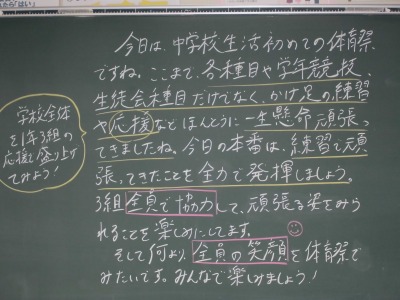 今日は、中学校生活初めての体育祭
ですね。ここまで、各種目や学年競技、
生徒会種目だけでなく、かけ足の練習
や応援などほんとうに一生懸命頑張っ
てきましたね。今日の本番は、練習で頑
張ってきたことを全力で発揮しましょう。
3組全員で協力して、頑張る姿をみら
れることを楽しみにしてます。
そして何より、全員の笑顔を体育祭で
みたいです。みんなで楽しみましょう!
学校全体
を1年3組の
応援で盛り上げ
てみよう!